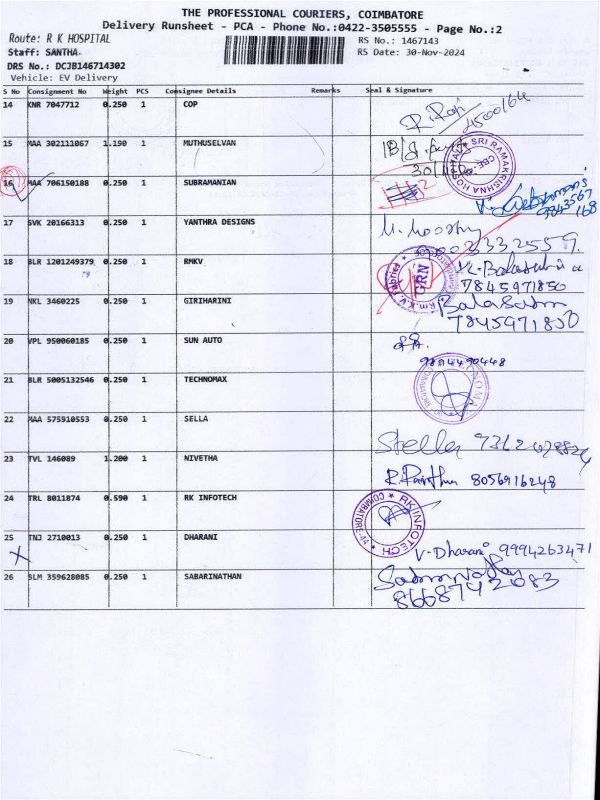 THE PROFESSIONAL COURIERS, COIMBATORE
Delivery Runsheet - PCA - Phone No.:0422-3505555 - Page No.:2
Route: R K HOSPITAL
RS No.: 1467143
Staff: SANTHA.
RS Date: 30-Nov-2024
DRS No.: DCJB146714302
Vehicle: EV Delivery
S No Consignment No Weight PCS Consignee Details Remarks Seal & Signature
14 KNR 7047712 0.250 1 COP
R. Raji 4500164
15 MAA 302111067 1.190 1 MUTHUSELVAN
SRI RAMAKRISHNA HOSPITAL CBE
16 MAA 706150188 0.250 1 SUBRAMANIAN
9843567
168
17 SVK 20166313 0.250 1 YANTHRA DESIGNS
M. Moorthy
18 BLR 1201249379 0.250 1 RMKV
GRN
K. Balasubra
7845971850
19 NKL 3460225 0.250 1 GIRIHARINI
Balasubra
7845971850
20 VPL 950060185 0.250 1 SUN AUTO
9814490448
21 BLR 5005132546 0.250 1 TECHNOMAX
22 MAA 575910553 0.250 1 SELLA
Stella
23 TVL 146089 1.200 1 NIVETHA
8056916248
24 TRL 8011874 0.590 1 RK INFOTECH
RK INFOTECH COIMBATORE-44
25 TNJ 2710013 0.250 1 DHARANI
V-Dharani 9994263471
26 SLM 359628085 0.250 1 SABARINATHAN
Sabarinathan
8668742083